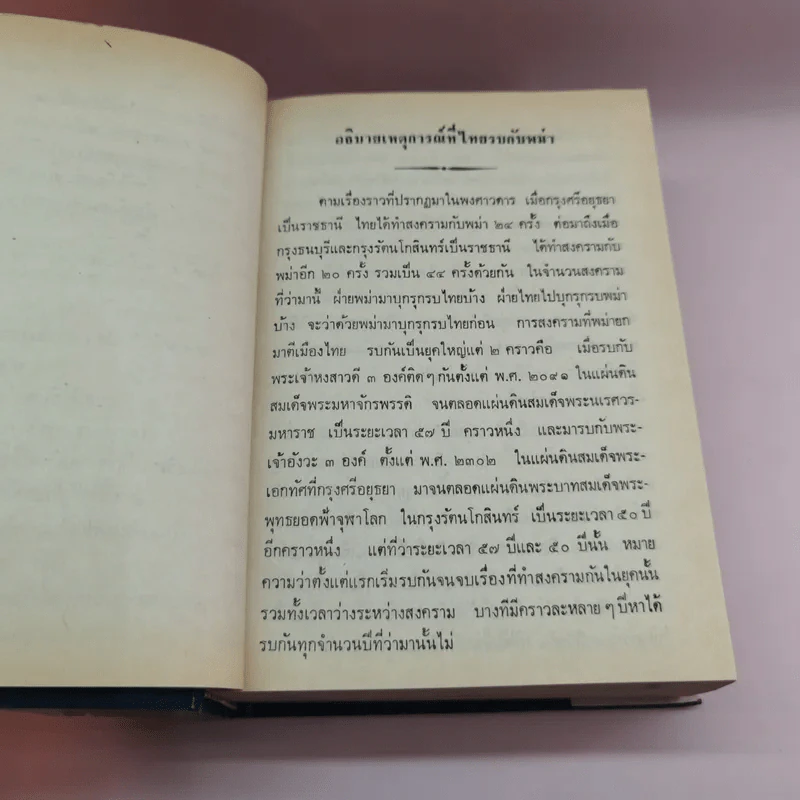 อธิบายเหตุการณ์ที่ไทยรบกับพม่า
ตามเรื่องราวที่ปรากฏมาในพงศาวดาร เมื่อกรุงศรีอยุธยา
เป็นราชธานี ไทยได้ทำสงครามกับพม่า ๒๔ ครั้ง ต่อมาถึงเมื่อ
กรุงธนบุรีและกรุงรัตนโกสินทร์เป็นราชธานี ได้ทำสงครามกับ
พม่าอีก ๒๐ ครั้ง รวมเป็น ๔๔ ครั้งด้วยกัน ในจำนวนสงคราม
ที่ว่ามานี้ ฝ่ายพม่ามาบุกรุกรบไทยบ้าง ฝ่ายไทยไปบุกรุกรบพม่า
บ้าง จะว่าด้วยพม่ามาบุกรุกรบไทยก่อน การสงครามที่พม่ายก
มาตีเมืองไทย รบกันเป็นยุคใหญ่แต่ ๒ คราวคือ เมื่อรบกับ
พระเจ้าหงสาวดี ๓ องค์ติดๆกันตั้งแต่ พ.ศ. ๒๐๙๑ ในแผ่นดิน
สมเด็จพระมหาจักรพรรดิ จนตลอดแผ่นดินสมเด็จพระนเรศวร-
มหาราช เป็นระยะเวลา ๕๗ ปี คราวหนึ่ง และมารบกับพระ-
เจ้าอังวะ ๓ องค์ ตั้งแต่ พ.ศ. ๒๓๐๒ ในแผ่นดินสมเด็จพระ-
เอกทัศที่กรุงศรีอยุธยา มาจนตลอดแผ่นดินพระบาทสมเด็จพระ-
พุทธยอดฟ้าจุฬาโลก ในกรุงรัตนโกสินทร์ เป็นระยะเวลา ๕๐ ปี
อีกคราวหนึ่ง แต่ที่ว่าระยะเวลา ๕๗ ปีและ ๕๐ ปีนั้น หมาย
ความว่าตั้งแต่แรกเริ่มรบกันจนจบเรื่องที่ทำสงครามกันในยุคนั้น
รวมทั้งเวลาว่างระหว่างสงคราม บางทีมีคราวละหลายๆปีหาได้
รบกันทุกจำนวนปีที่ว่ามานั้นไม่